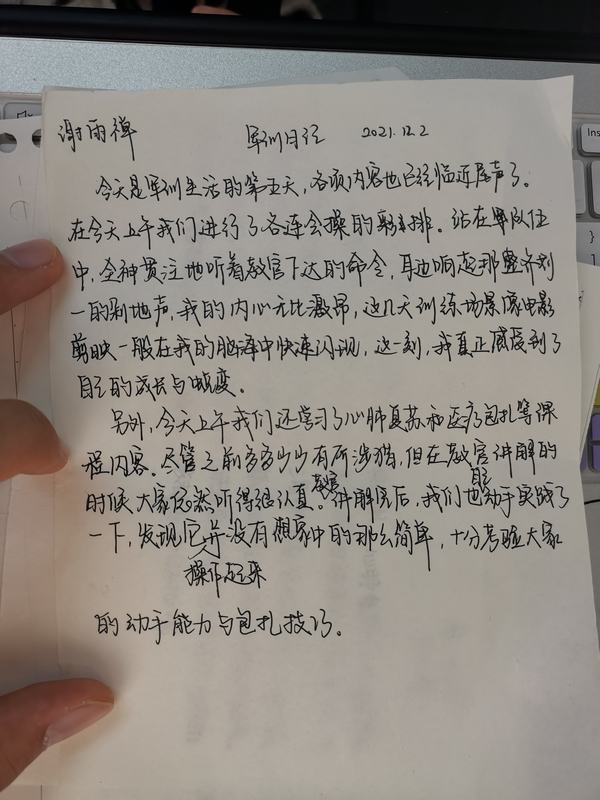 谢雨禅 军训日记 2021.12.2
今天是军训生活的第五天，各项内容也已经临近尾声了。
在今天上午我们进行了各连会操的彩排。站在单队伍
中，全神贯注地听着教官下达的命令，耳边响起那整齐划
一的剁地声，我的内心无比激昂，这几天训练场景像电影
剪映一般在我的脑海中快速闪现，这一刻，我真正感受到了
自己的成长与蜕变。
另外，今天上午我们还学习了心肺复苏和医疗包扎等课
程内容。尽管之前多多少少有所涉猎，但在教官讲解的
时候，大家依然听得很认真。教官讲解完后，我们也自己动手实践了
一下，发现它操作起来并没有想象中的那么简单，十分考验大家
的动手能力与包扎技巧。